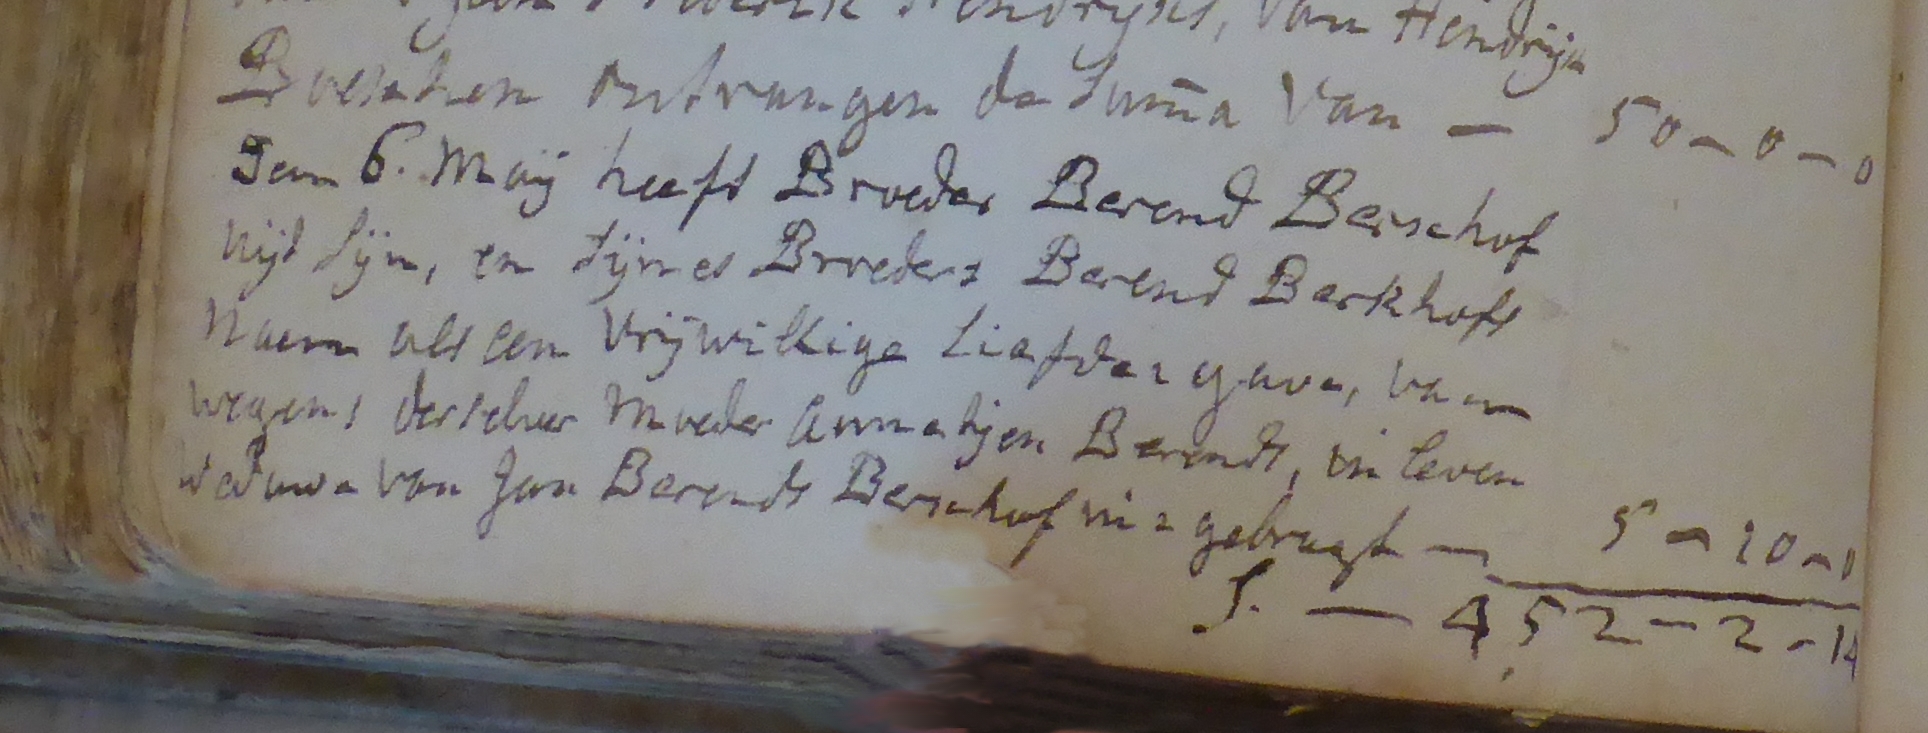 Hendryks, van Hendrijk
Boeschen ontvangen de Sum̄a van — 50 - 0 - 0
Den 6. Maij heeft Broeder Berend Berschof
uijt sijn, en sijnes Broeders Berend Berkhofs
Naem als een vrijwillige Liefdes gave, van
wegens derselver Moeder Annatijen Berends, in leven
Weduwe van Jan Berends Berschof in = gebragt — 5 - 10 - 0
S. — 452 - 2 - 14